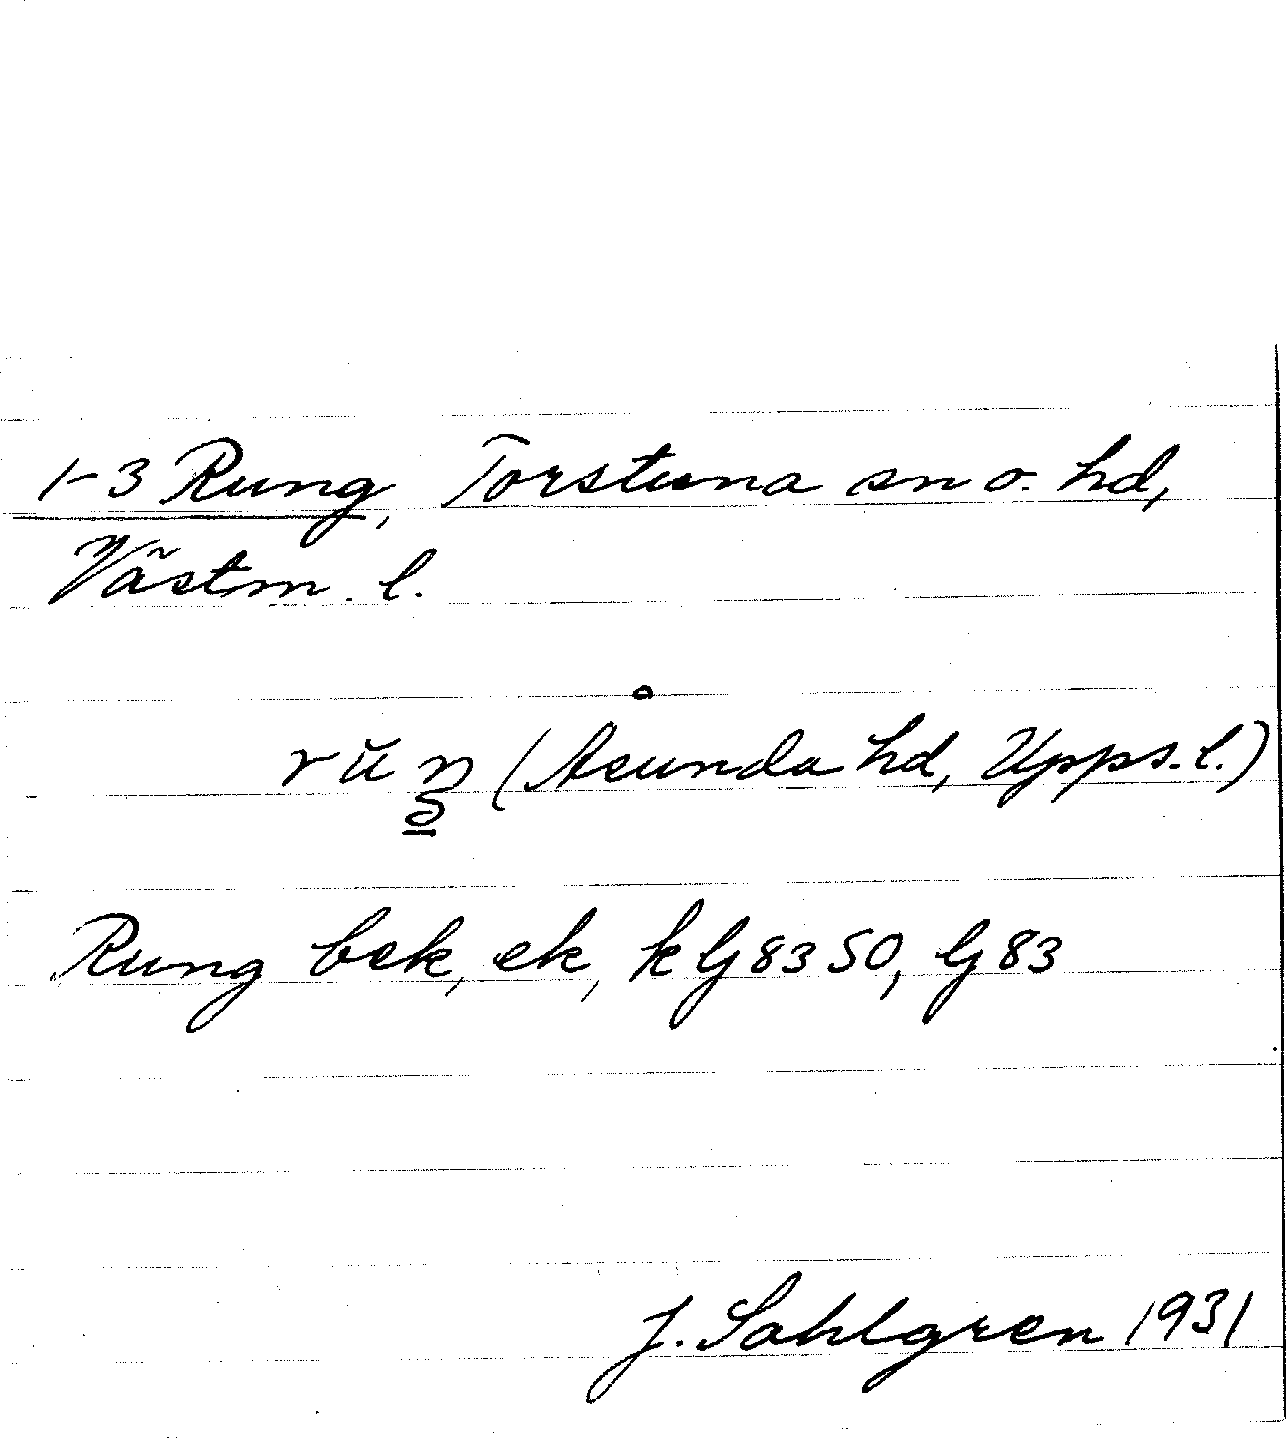 1-3 Rung, Torstuna sn o. hd,
Västm. l.
(Åsunda hd, Upps. l.)
Rung bek, ek, k G 83 SO, G 83
J. Sahlgren 1931